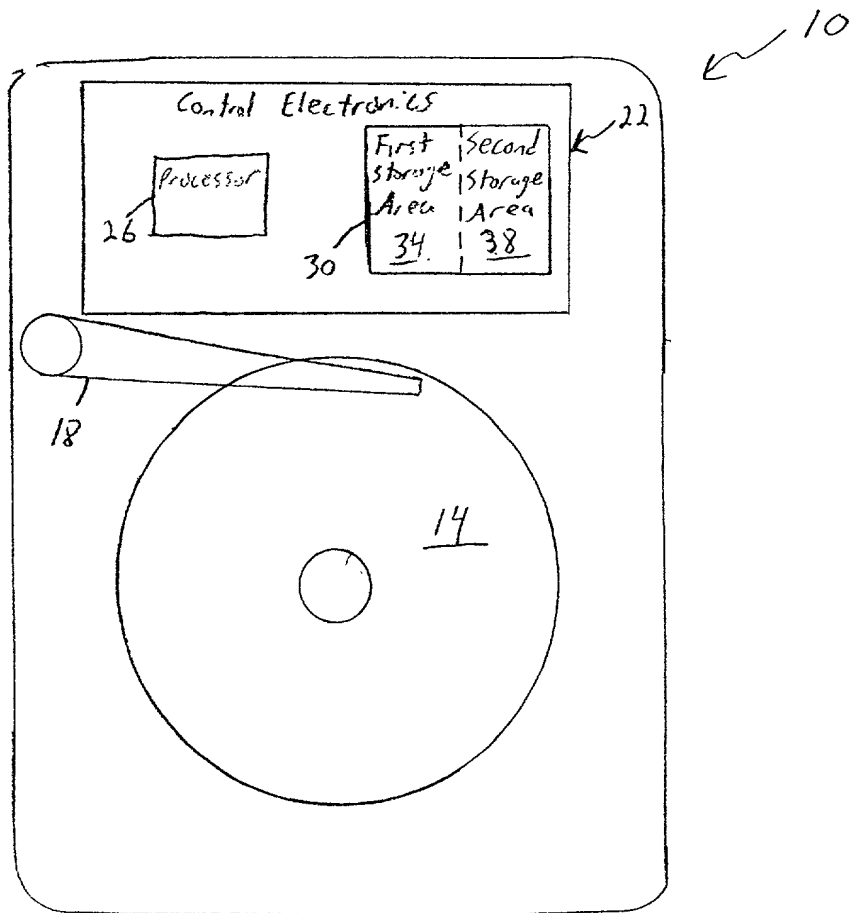 10
Control Electronics
22
Processor
26
First
Storage
Area
34
Second
Storage
Area
38
30
18
14